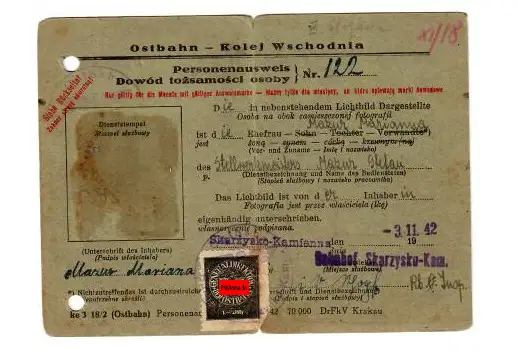 XI/18
Ostbahn – Kolej Wschodnia
Personenausweis
Dowód tożsamości osoby
Nr. 122
Nur gültig für die Monate mit gültiger Ausweismarke – Ważny tylko dla miesięcy, na które opiewają marki dowodowe
Siehe Rückseite!
Zobacz drugą stronę!
Dienststempel
Stempel służbowy
Die in nebenstehendem Lichtbild Dargestellte
Osoba na obok zamieszczonej fotografii
Mazur Marianna
ist die Ehefrau – Sohn – Tochter – Verwandte*)
jest żoną – synem – córką – krewnym(ną)
(Vor- und Zuname – Imię i nazwisko)
des Stellwerkmeisters Mazur Stefan
p. (Dienstbezeichnung und Name des Bediensteten)
(Stopień służbowy i nazwisko pracownika)
Das Lichtbild ist von der Inhaberin
Fotografia jest przez właściciela (lkę)
eigenhändig unterschrieben.
własnoręcznie podpisana.
-3. 11. 42
Skarzysko-Kamienna, den 19
(Unterschrift des Inhabers)
(Podpis właściciela)
Bahnhof Skarzysko-Kam.
(Miejsce służbowe)
Mazur Mariana
*) Nichtzutreffendes ist durchzustreichen
(Podpis i stopień służbowy)
ke 3 18/2 (Ostbahn) Personenau 42 70 000 DrFkV Krakau